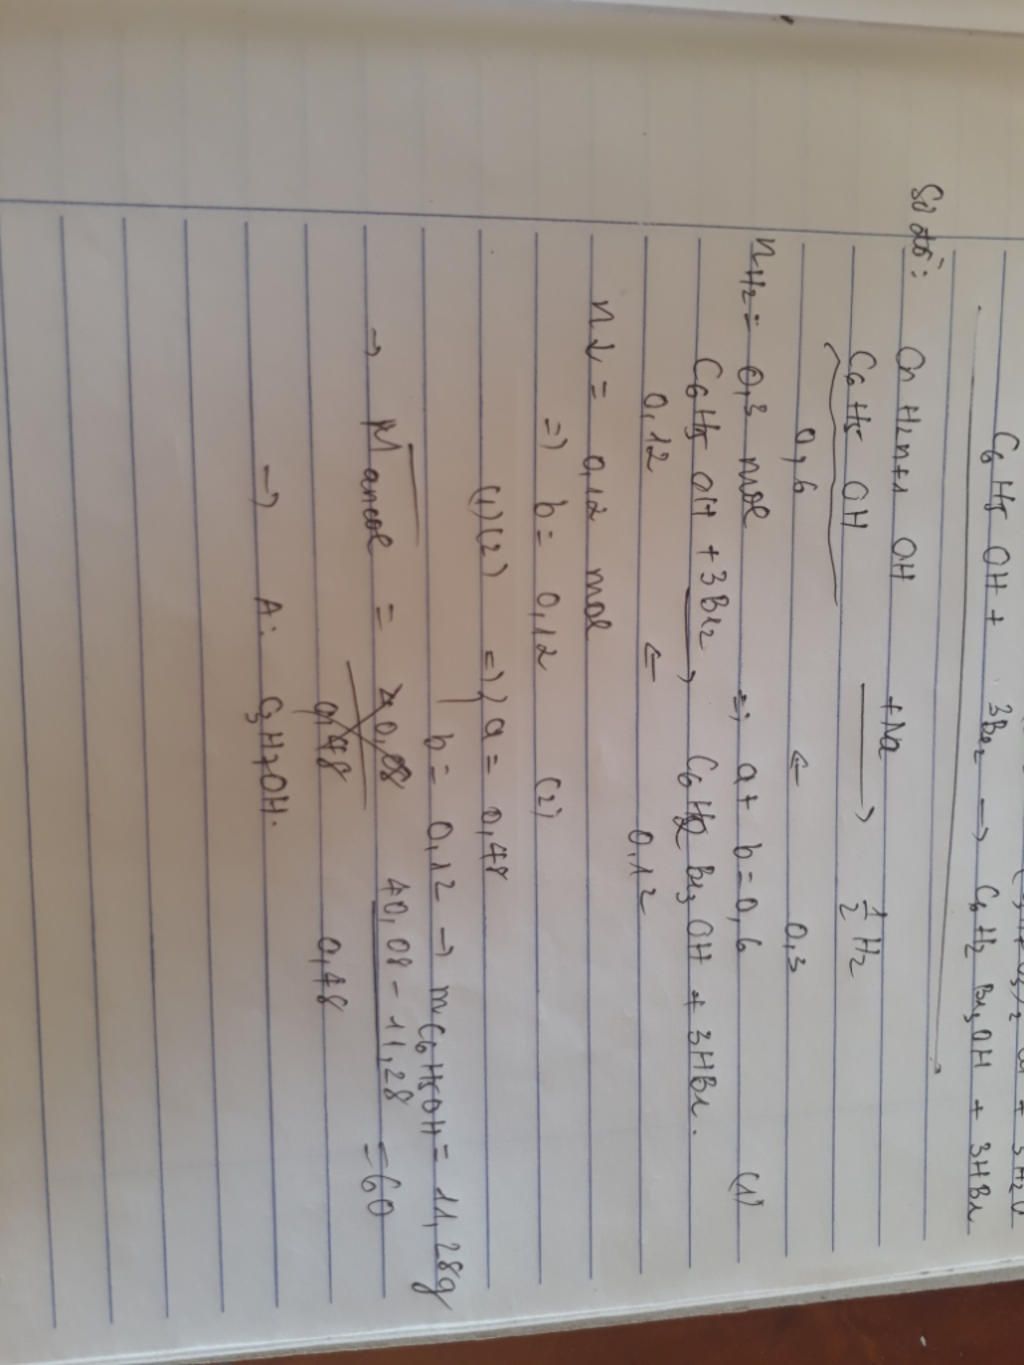 C6H5OH + 3Br2 → C6H2Br3OH + 3HBr
Sơ đồ: CnH2n+1 OH +Na
C6H5 OH → 1/2 H2
0,6 ← 0,3
nH2 = 0,3 mol => a + b = 0,6 (1)
C6H5 OH + 3Br2 → C6H2 Br3 OH + 3HBr.
0,12 ← 0,12
n↓ = 0,12 mol
=> b = 0,12 (2)
(1)(2) => a = 0,48
b = 0,12 → mC6H5OH = 11,28g
→ M ancol = 40,08 - 11,28 = 60
0,48
→ A: C3H7OH.